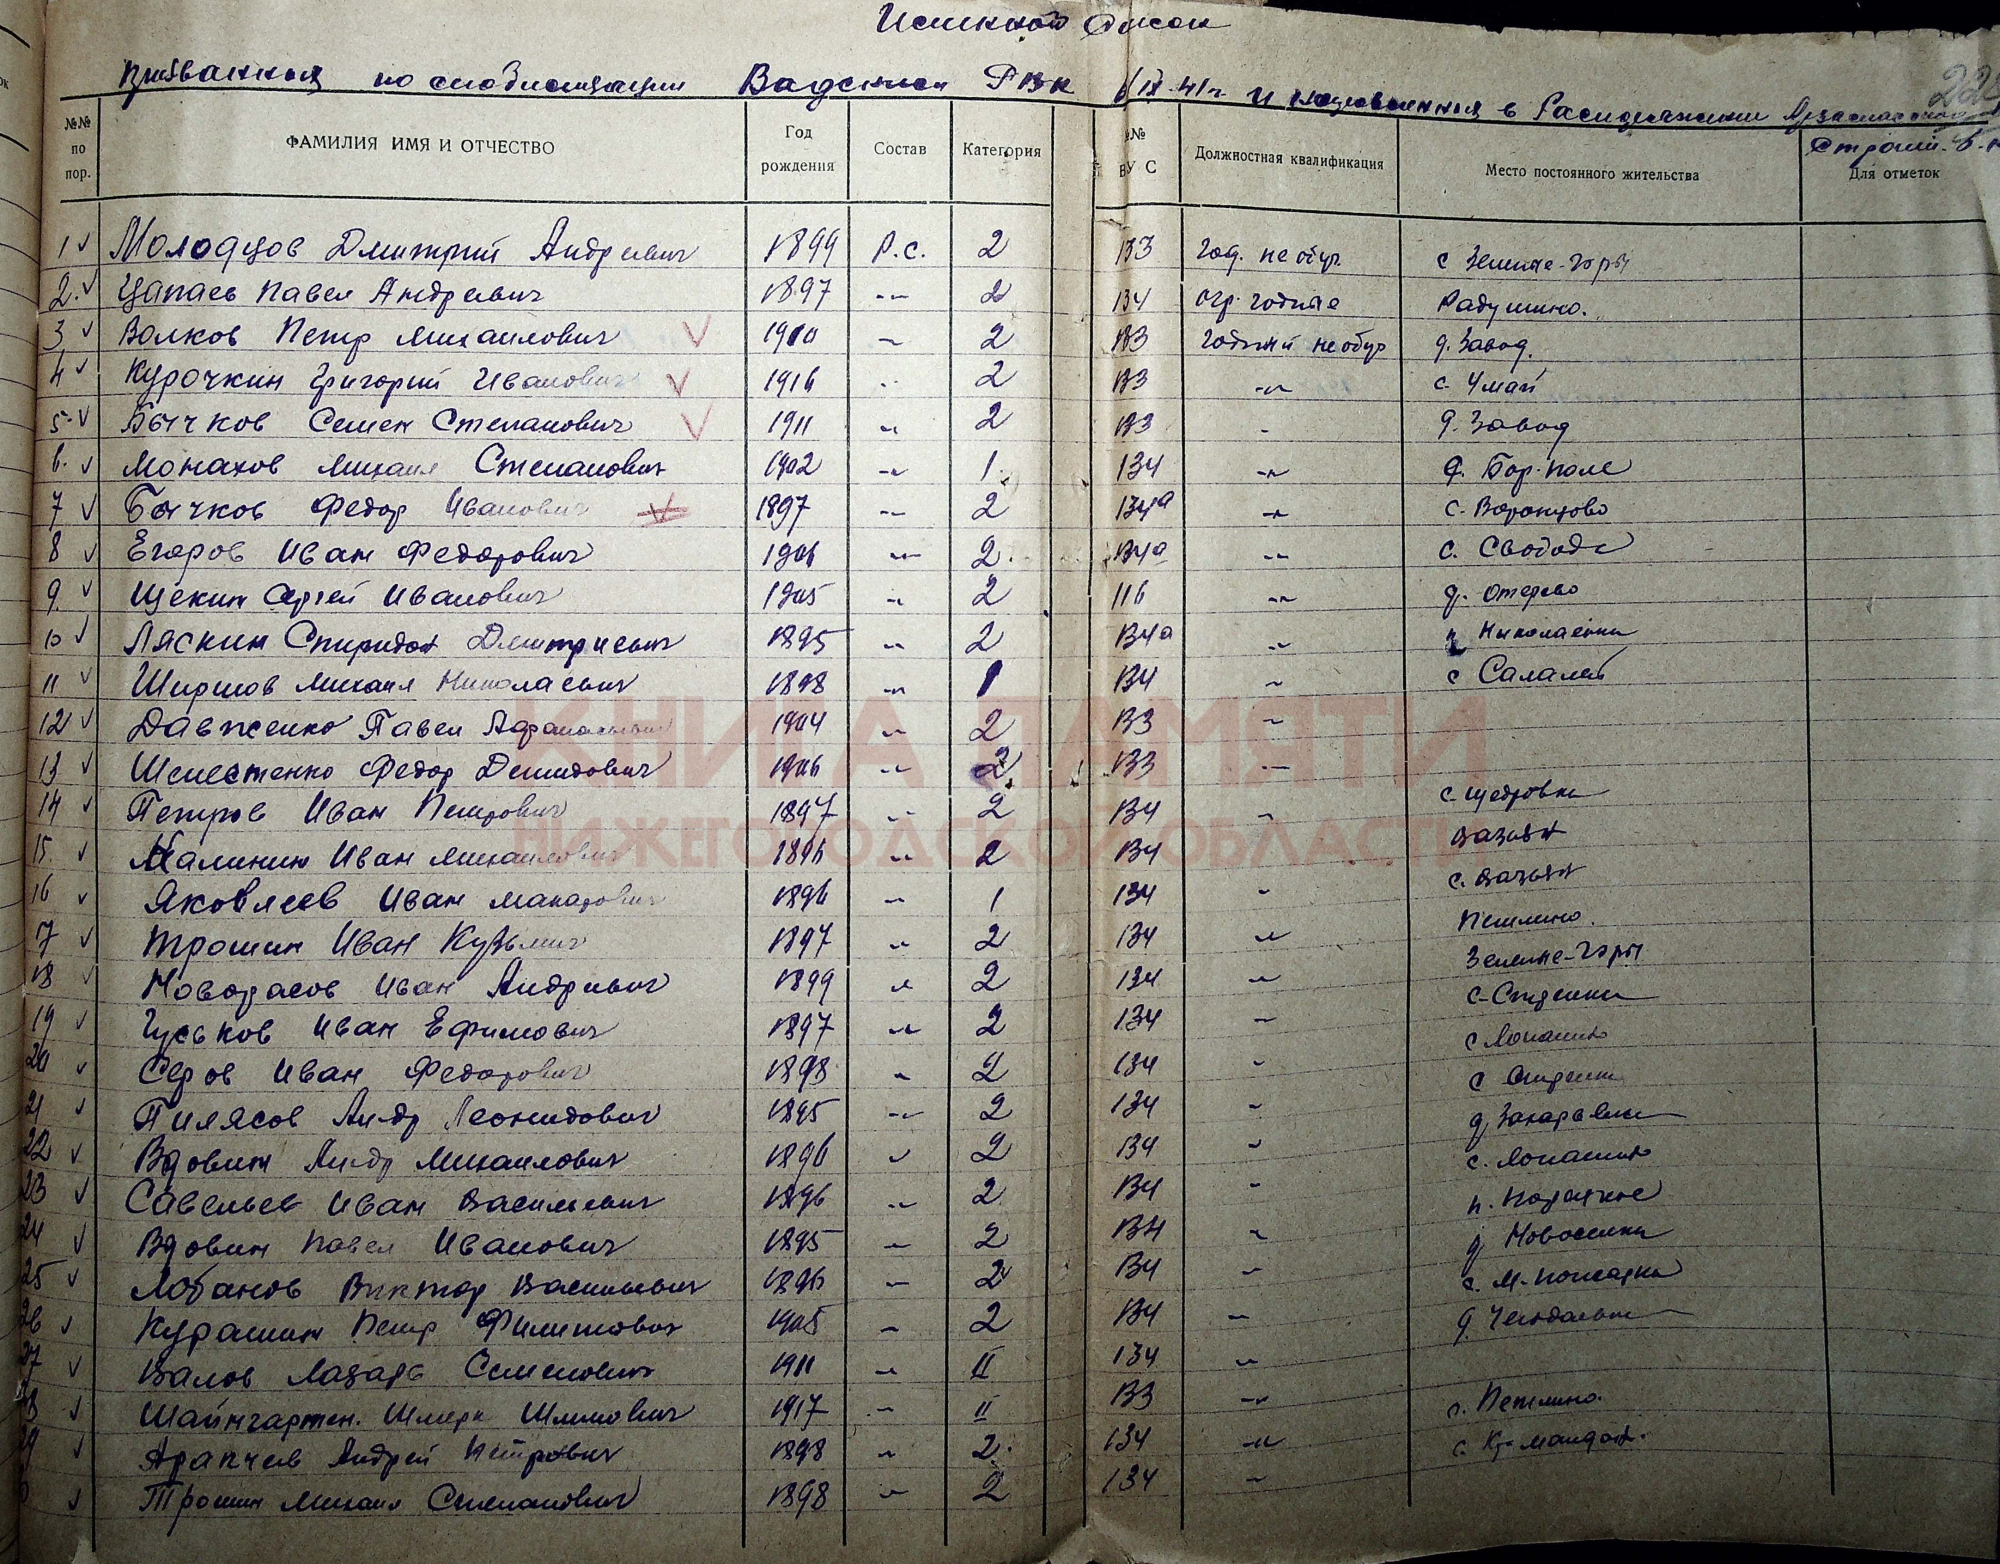 Именной список
Призванных по мобилизации Вадским РВК 6/IX-41г. и направленных в Распоряжение Арзамасского
225
Строит. б.
№№ по пор. ФАМИЛИЯ ИМЯ И ОТЧЕСТВО Год рождения Состав Категория №№ ВУС Должностная квалификация Место постоянного жительства Для отметок
1 Молодцов Дмитрий Андреевич 1899 Р.с. 2 133 год. не обуч. с Зеленые-горы
2. Цапаев Павел Андреевич 1897 -"- 2 134 огр. годные Радушино.
3 Волков Петр Михайлович 1910 -"- 2 133 годный не обуч д. Завод.
4 Курочкин Григорий Иванович 1916 -"- 2 133 -"- с. Умай
5 Бычков Семен Степанович 1911 -"- 2 133 - д. Завод
6. Монахов Михаил Степанович 1902 -"- 1. 134 -"- д. Бор-поле
7 Бычков Федор Иванович 1897 -"- 2 134а -"- с. Воронцово
8 Егоров Иван Федорович 1906 -"- 2. 134а -"- с. Свобода
9. Щекин Сергей Иванович 1905 -"- 2 116 -"- д. Отерево
10 Ляскин Спиридон Дмитриевич 1895 -"- 2 134а -"- п Николаевка
11 Ширшов Михаил Николаевич 1898 -"- 1 134 -"- с Салалей
12 Давженко Павел Афанасьевич 1904 -"- 2 133 -"-
13 Шелестенко Федор Демидович 1906 -"- 2. 133 -"-
14 Петров Иван Петрович 1897 -"- 2 134 -"- с. Щедровка
15. Малинин Иван Михайлович 1896 -"- 2 134 Вазьян
16 Яковлев Иван Макарович 1896 -"- 1 134 -"- с. Вазьян
17 Трошин Иван Кузьмич 1897 -"- 2 134 -"- Петлино.
18 Новорасов Иван Андреевич 1899 -"- 2 134 -"- Зеленые-Горы
19 Гуськов Иван Ефимович 1897 -"- 2 134 -"- с-Студенки
20 Серов Иван Федорович 1898 -"- 2 134 -"- с Лопатино
21 Пилясов Андр Леонидович 1895 -"- 2 134 -"- с Студенки
22 Вдовин Андр Михайлович 1896 -"- 2 134 -"- д Захарьевка
23 Савельев Иван Васильевич 1896 -"- 2 134 -"- с. Лопатино
24 Вдовин Павел Иванович 1895 -"- 2 134 -"-
25 Лобанов Виктор Васильевич 1896 -"- 2 134 -"- д Новоселки
26 Курашин Петр Филиппович 1905 -"- 2 134 -"- с. М-пожарки
27 Валов Лазарь Семенович 1911 -"- II 134 -"-
28 Шайнгартен. Шмерк Шлиомович 1917 -"- II 133 -"- п. Петлино.
29 Арапчев Андрей Петрович 1898 -"- 2. 134 -"-
Трошин Михаил Степанович 1898 -"- 2 134 -"-
КНИГА ПАМЯТИ
НИЖЕГОРОДСКОЙ ОБЛАСТИ